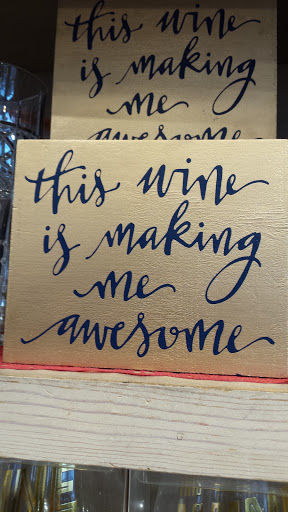 this wine
is making
me
awesome
this wine
is making
me
awesome